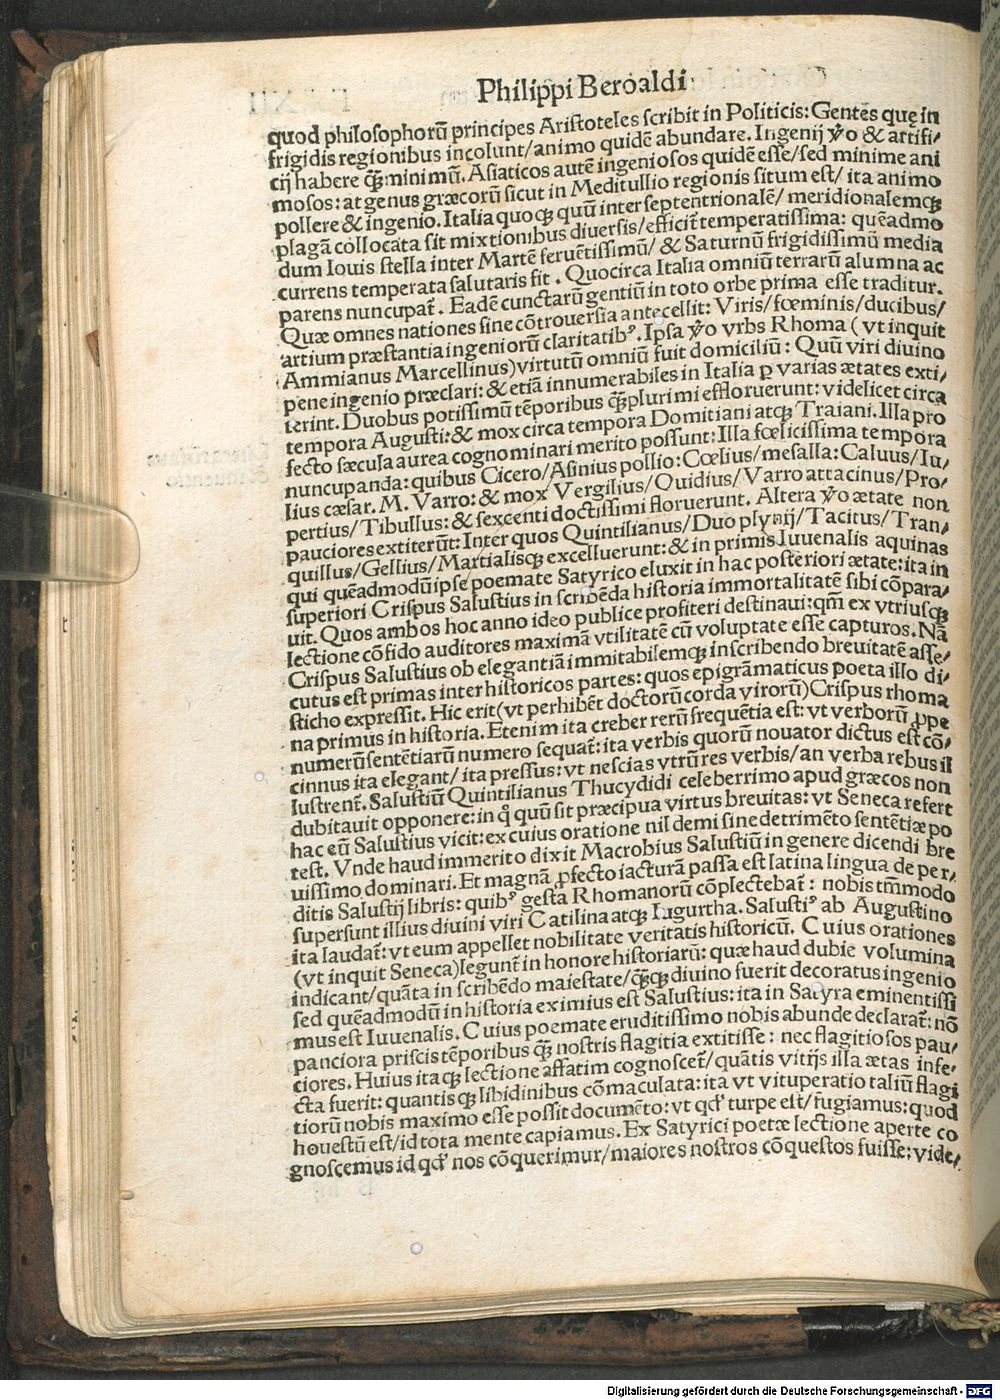 Philippi Beroaldi
quod philosophorū principes Aristoteles scribit in Politicis: Gentes quę in
frigidis regionibus incolunt/animo quidē abundare. Ingenij v̊o & artifi/
cij habere q̃ꝫ minimū. Asiaticos autē ingeniosos quidē esse/sed minime ani
mosos: at genus græcorū sicut in Meditullio regionis situm est/ ita animo
pollere & ingenio. Italia quoqꝫ quū inter septentrionalē/ meridionalemqꝫ
plagā collocata sit mixtionibus diuersis/efficit̃ temperatissima: quēadmo
dum Iouis stella inter Martē feruētissimū/ & Saturnū frigidissimū media
currens temperata salutaris fit . Quocirca Italia omniū terrarū alumna ac
parens nuncupat̃. Eadē cunctarū gentiū in toto orbe prima esse traditur.
Quæ omnes nationes sine cōtrouersia antecellit: Viris/fœminis/ducibus/
artium præstantia ingeniorū claritatibꝰ. Ipsa v̊o vrbs Rhoma ( vt inquit
Ammianus Marcellinus) virtutū omniū fuit domiciliū: Quū viri diuino
pene ingenio præclari: & etiā innumerabiles in Italia ꝑ varias ætates exti/
terint. Duobus potissimū tēporibus q̃ꝫ plurimi effloruerunt: videlicet circa
tempora Augusti: & mox circa tempora Domitiani atqꝫ Traiani. Illa pro
fecto sæcula aurea cognominari merito possunt: Illa fœlicissima tempora
nuncupanda: quibus Cicero/Asinius pollio: Cœlius/mesalla: Caluus/Iu/
lius cæsar. M. Varro: & mox Vergilius/Quidius/Varro attacinus/Pro/
pertius/Tibullus: & sexcenti doctissimi floruerunt. Altera v̊o ætate non
pauciores extiterūt: Inter quos Quintilianus/Duo plynij/Tacitus/Tran/
quillus/Gellius/Martialisqꝫ excelluerunt: & in primis Iuuenalis aquinas
qui quēadmodū ipse poemate Satyrico eluxit in hac posteriori ætate: ita in
superiori Crispus Salustius in scribēda historia immortalitatē sibi cōpara/
uit. Quos ambos hoc anno ideo publice profiteri destinaui: qm̄ ex vtriusqꝫ
lectione cōfido auditores maximā vtilitatē cū voluptate esse capturos. Nā
Crispus Salustius ob elegantiā immitabilemqꝫ in scribendo breuitatē asse/
cutus est primas inter historicos partes: quos epigrāmaticus poeta illo di/
sticho expressit. Hic erit (vt perhibēt doctorū corda virorū) Crispus rhoma
na primus in historia. Etenim ita creber rerū frequētia est: vt verborū ꝓpe
numerū sentētiarū numero sequat̃: ita verbis quorū nouator dictus est cō/
cinnus ita elegant/ ita pressus: vt nescias vtrū res verbis/an verba rebus il
lustrent̃. Salustiū Quintilianus Thucydidi celeberrimo apud græcos non
dubitauit opponere: in q̊ quū sit præcipua virtus breuitas: vt Seneca refert
hac eū Salustius vicit: ex cuius oratione nil demi sine detrimēto sentētiæ po
test. Vnde haud immerito dixit Macrobius Salustiū in genere dicendi bre
uissimo dominari. Et magnā ꝓfecto iacturā passa est latina lingua de per/
ditis Salustij libris: quibꝰ gesta Rhomanorū cōplectebat̃ : nobis tm̄modo
supersunt illius diuini viri Catilina atqꝫ Iugurtha. Salustiꝰ ab Augustino
ita laudat̃: vt eum appellet nobilitate veritatis historicū. Cuius orationes
(vt inquit Seneca) legunt̃ in honore historiarū: quæ haud dubie volumina
indicant/quāta in scribēdo maiestate/q̃ꝫqꝫ diuino fuerit decoratus ingenio
sed quēadmodū in historia eximius est Salustius: ita in Satyra eminentissi
mus est Iuuenalis. Cuius poemate eruditissimo nobis abunde declarat̃: nō
panciora priscis tēporibus q̃ꝫ nostris flagitia extitisse: nec flagitiosos pau/
ciores. Huius itaqꝫ lectione affatim cognoscet̃/quātis vitijs illa ætas infe/
cta fuerit: quantisqꝫ libidinibus cōmaculata: ita vt vituperatio taliū flagi
tiorū nobis maximo esse possit documēto: vt qđ turpe est/ fugiamus: quod
houestū est/id tota mente capiamus. Ex Satyrici poetæ lectione aperte co
gnoscemus id qđ nos cōquerimur/maiores nostros cōquestos fuisse: vide/
Digitalisierung gefördert durch die Deutsche Forschungsgemeinschaft - DFG